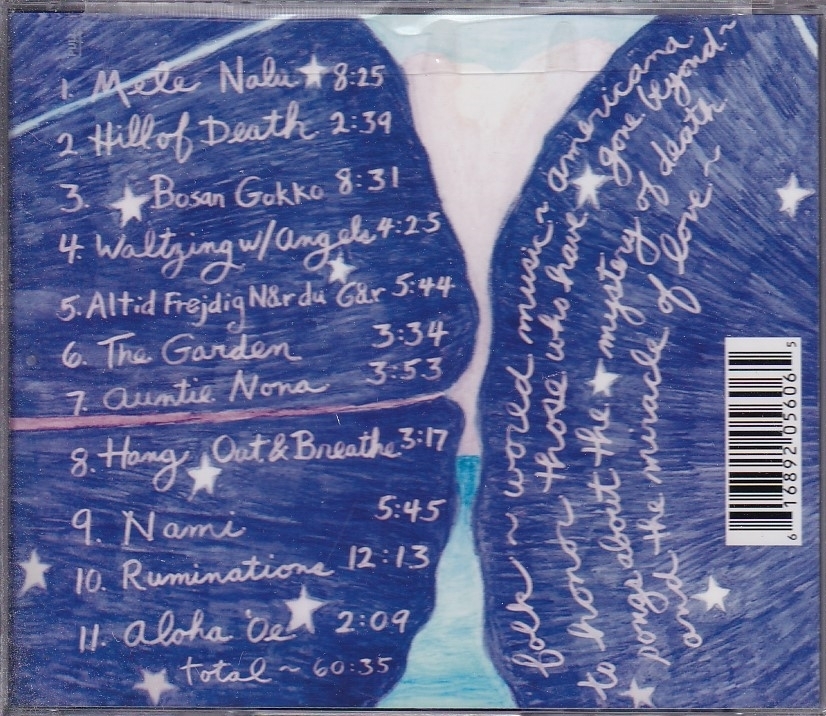 1. Mele Nalu 8:25
2 Hill of Death 2:39
3. Bosan Gokko 8:31
4. Waltzing w/Angels 4:25
5. Altid Frejdig N&r du G&r 5:44
6. The Garden 3:34
7. Auntie Nona 3:53
8. Hang Out & Breathe 3:17
9. Nami 5:45
10. Ruminations 12:13
11. Aloha 'Oe 2:09
total ~ 60:35
folk ~ world music ~ americana
to honor those who have gone beyond ~
songs about the mystery of death
and the miracle of love ~
6 16892 05606 5